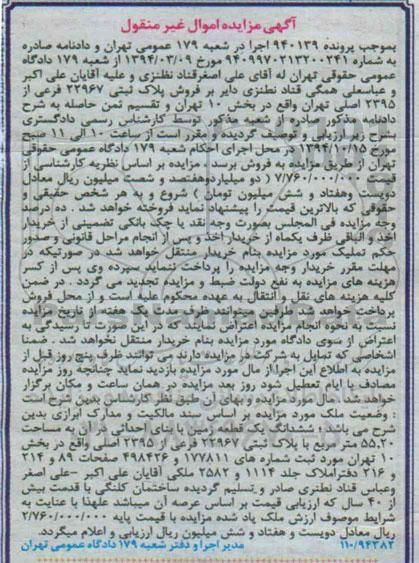 آگهی مزایده اموال غیر منقول
بموجب پرونده ۹۴۰۱۳۹ اجرا در شعبه ۱۷۹ عمومی تهران و دادنامه صادره
به شماره ۹۴۰۹۹۷۰۲۱۳۲۰۰۲۴۱ مورخ ۱۳۹۴/۰۳/۰۹ از شعبه ۱۷۹ دادگاه
عمومی حقوقی تهران له آقای علی اصغر قناد نطنزی و علیه آقایان علی اکبر
و عباسعلی همگی قناد نطنزی دایر بر فروش پلاک ثبتی ۲۲۹۶۷ فرعی از
۲۳۹۵ اصلی تهران واقع در بخش ۱۰ تهران و تقسیم ثمن حاصله به شرح
دادنامه مذکور صادره از شعبه مذکور توسط کارشناس رسمی دادگستری
بشرح زیر ارزیابی و توصیف گردیده و مقرر است از ساعت ۱۰ الی ۱۱ صبح
مورخ ۱۳۹۴/۱۰/۱۵ در محل اجرای احکام شعبه ۱۷۹ دادگاه عمومی حقوقی
تهران از طریق مزایده به فروش برسد . مزایده بر اساس نظریه کارشناسی از
قیمت ۲/۷۶۰/۰۰۰/۰۰۰ ( دو میلیارد و هفتصد و شصت میلیون ریال معادل
دویست وهفتاد و شش میلیون تومان ) شروع و به هر شخص حقیقی و
حقوقی که بالاترین قیمت را پیشنهاد نماید فروخته خواهد شد . ده درصد
وجه مزایده فی المجلس بصورت وجه نقد یا چک بانکی تضمینی از خریدار
اخذ و الباقی ظرف یکماه از خریدار اخذ و پس از انجام مراحل قانونی و صدور
حکم تملیک مورد مزایده بنام خریدار منتقل خواهد شد در صورتیکه در
مهلت مقرر خریدار وجه مزایده را پرداخت ننماید سپرده وی پس از کسر
هزینه های مزایده به نفع دولت ضبط و مزایده تجدید می گردد . در ضمن
کلیه هزینه های نقل و انتقال به عهده محکوم علیه است و از محل فروش
پرداخت خواهد شد طرفین میتوانند ظرف مدت یک هفته از تاریخ مزایده
نسبت به نحوه انجام مزایده اعتراض نمایند که در این صورت تا رسیدگی به
اعتراض از سوی دادگاه مورد مزایده بنام خریدار منتقل نخواهد شد . ضمنا
اشخاصی که تمایل به شرکت در مزایده دارند می توانند ظرف پنج روز قبل از
مزایده به اطلاع این اجرا از مال مورد مزایده بازدید نماید چنانچه روز مزایده
مصادف با ایام تعطیل شود روز بعد مزایده در همان ساعت و مکان برگزار
خواهد شد. مال مورد مزایده و بهای آن طبق نظر کارشناس بدین شرح است
: وضعیت ملک مورد مزایده بر اساس سند مالکیت و مدارک ابرازی بدین
شرح می باشد ؛ ششدانگ یک قطعه زمین با بنای احداثی در آن به مساحت
۵۵.۲۰ متر مربع با پلاک ثبتی ۲۲۹۶۷ فرعی از ۲۳۹۵ اصلی واقع در بخش
۱۰ تهران مورد ثبت شماره های ۱۷۷۸۱۱ و ۴۹۸۴۲۶ صفحات ۸۹ و ۲۱۴
و ۲۱۶ دفتراملاک جلد ۱۱۱۴ و ۲۵۸۲ ملکی آقایان علی اکبر -علی اصغر
وعباس قناد نطنزی صادر و تسلیم گردیده ساختمان کلنگی با قدمت بیش
از ۴۰ سال که ارزیابی قیمت بر اساس عرصه آن میباشد علهذا با عنایت به
شرایط موصوف ارزش ملک یاد شده مزایده با قیمت پایه ۲/۷۶۰/۰۰۰/۰۰۰
ریال معادل دویست و هفتاد و شش میلیون ریال ارزیابی و اعلام میگردد.
۱۱۰/۹۴۳۸۳ مدیر اجرا و دفتر شعبه ۱۷۹ دادگاه عمومی تهران